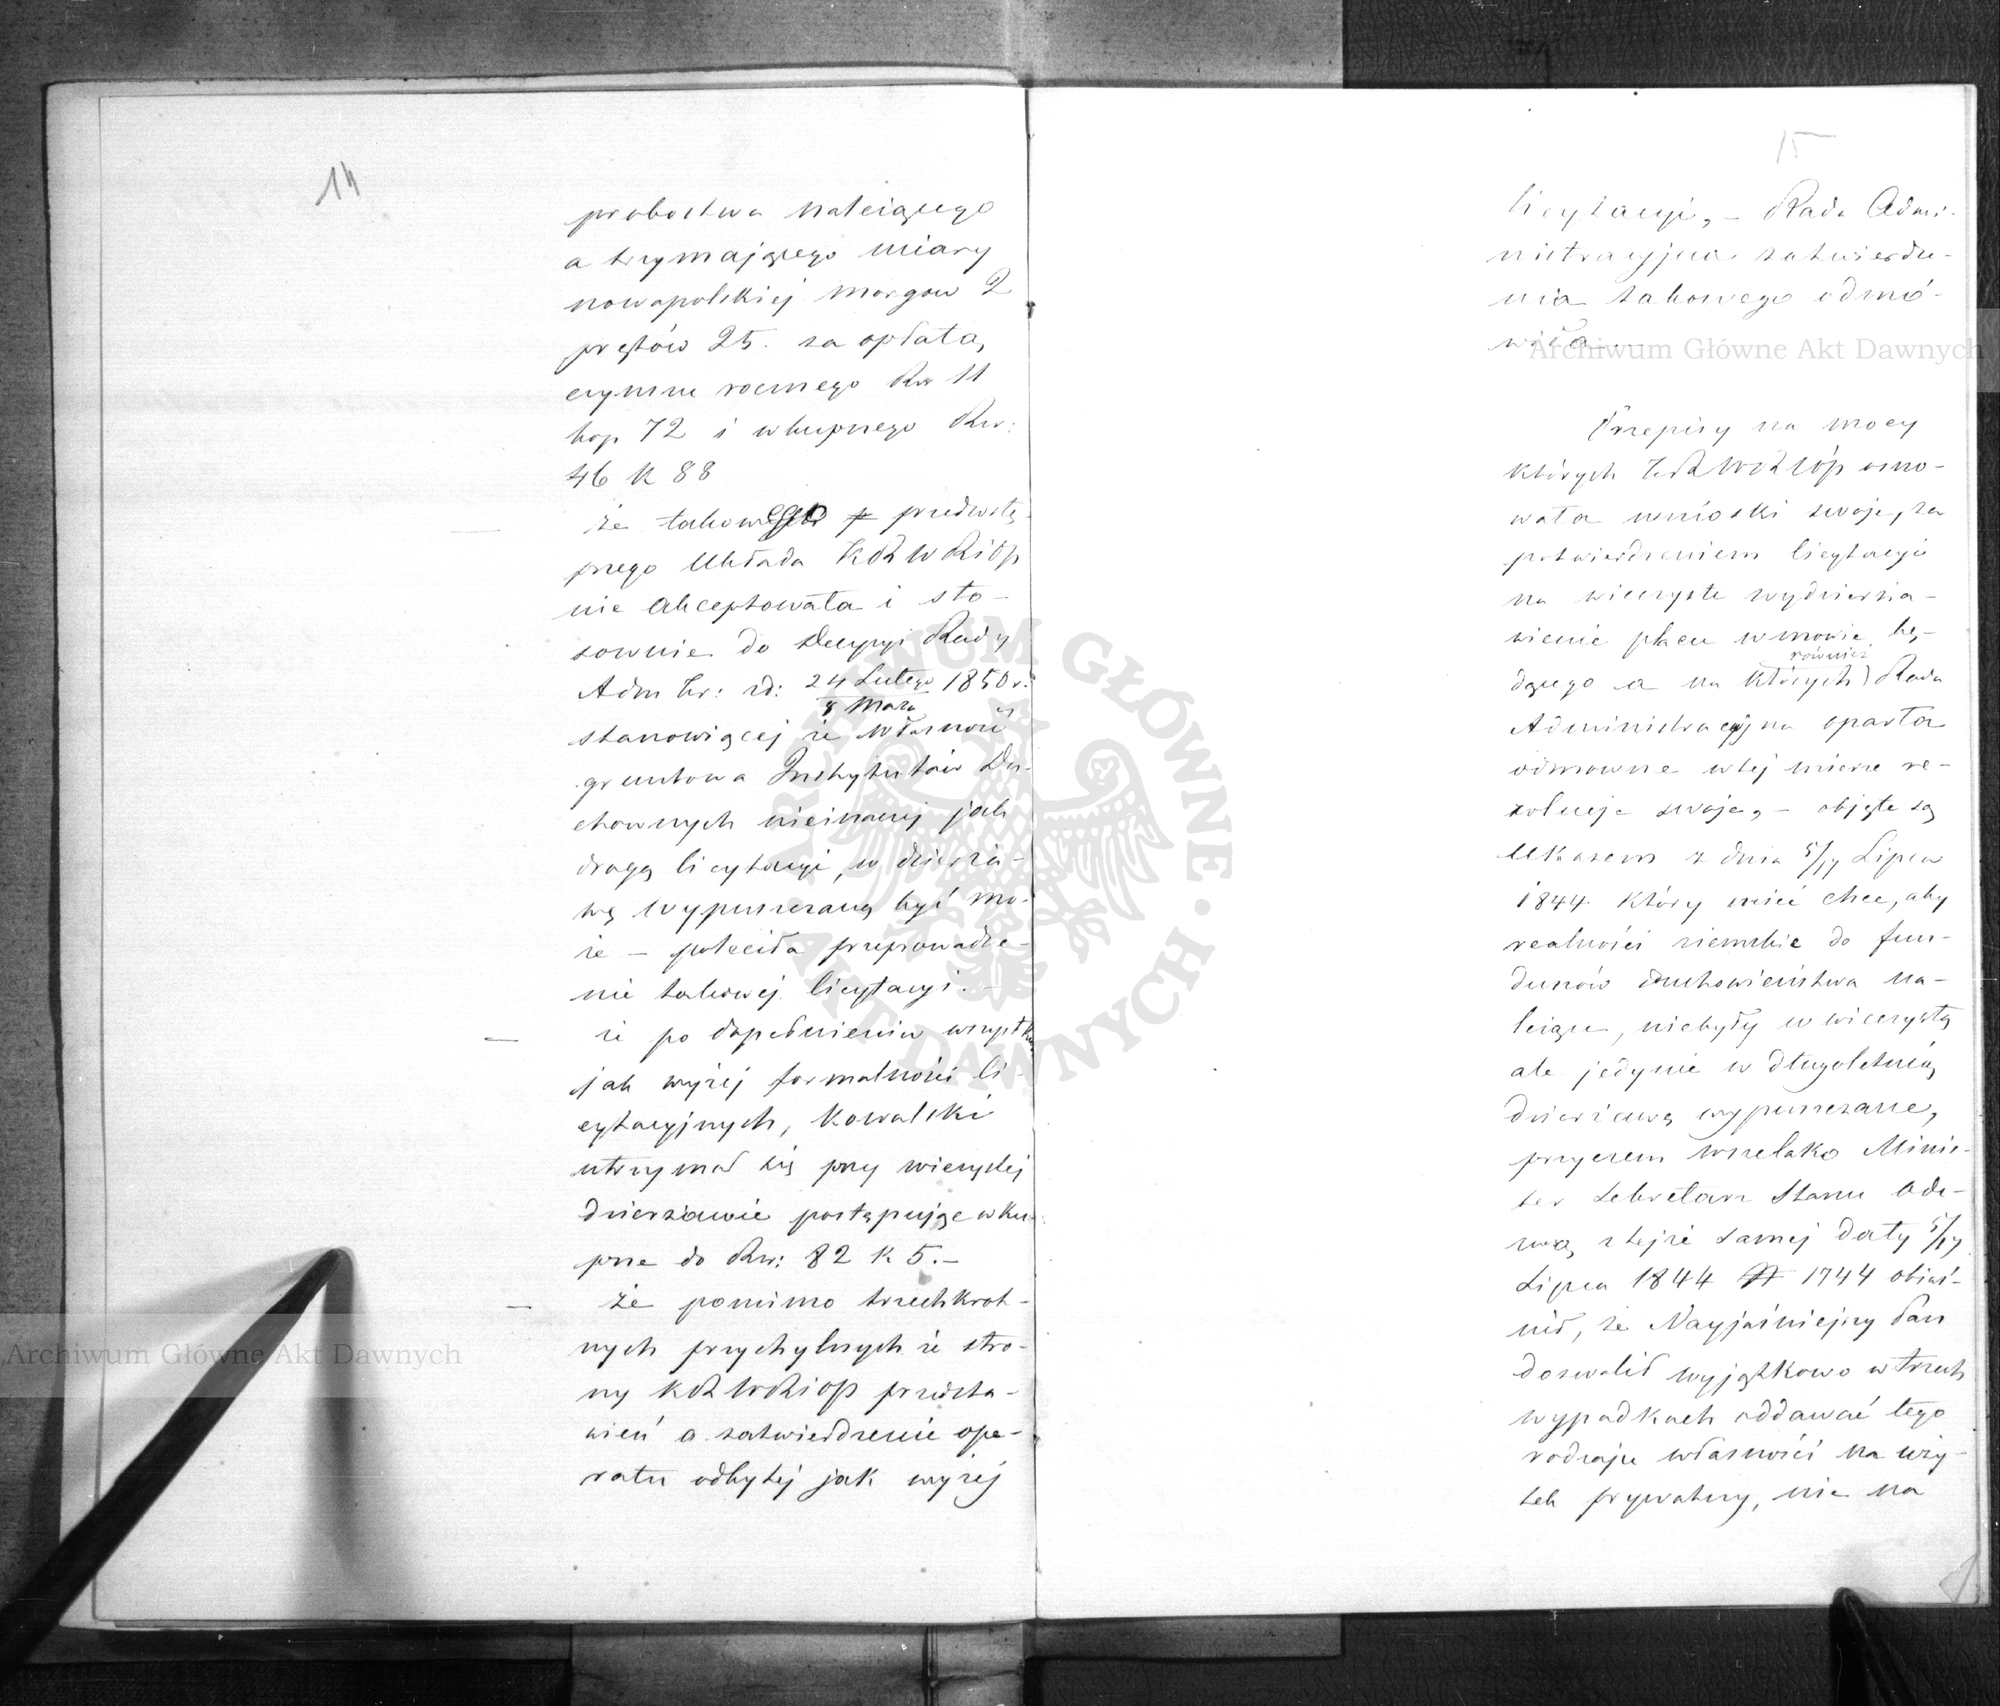 14
probostwa należącego
a trzymającego miary
nowopolskiej morgów 2
prętów 25. za opłatą
czynszu rocznego Rsr 11
kop 72 i wkupnego Rsr:
46 K 88
że takowego p przedwstę-
pnego Układu KRSWRiOP
nie akceptowała i sto-
sownie do Decyzyi Rady
Adm Kr: zd: 24 Lutego 1850 r.
8 Marca
stanowiącej że własność
gruntowa Instytutów Du-
chownych nieinaczej jak
drogą licytacyi, w dzierża-
wę wypuszczaną być mo-
że – poleciła przeprowadze-
nie takowej licytacyi. –
– że po dopełnieniu wszystkich
jak wyżej formalności li-
cytacyjnych, Kowalski
utrzymał się przy wieczystej
dzierżawie postępując wku-
pne do Rsr: 82 K 5. –
– że pomimo trzechkrot-
nych przychylnych ze stro-
ny KRSWRiOP przedsta-
wień a zatwierdzenie ope-
ratu odbytej jak wyżej
15
licytacyi, – Rada Admi-
nistracyjna zatwierdze-
nia takowego odmó-
wiła. –
Przepisy na mocy
których KRSWRiOP osno-
wała wnioski swoje, za
potwierdzeniem licytacyi
na wieczyste wydzierża-
wienie placu w mowie bę-
również
dącego a na których Rada
Administracyjna oparła
odmowne w tej mierze re-
zolucje swoje, – objęte są
Ukazem z dnia 5/17 Lipca
1844 który mieć chce, aby
realności ziemskie do fun-
duszów duchowieństwa na-
leżące, niebyły w wieczystą
ale jedynie w długoletnią
dzierżawę wypuszczane,
przyczem wszelako Minis-
ter Sekretarz Stanu Ode-
zwą z tejże samej daty 5/17
Lipca 1844 N 1744 objaś-
nił, że Najjaśniejszy Pan
dozwolił wyjątkowo w trzech
wypadkach oddawać tego
rodzaju własności na uży-
tek prywatny, nie na
Archiwum Główne Akt Dawnych
Archiwum Główne Akt Dawnych
ARCHIWUM GŁÓWNE · AKT DAWNYCH ·